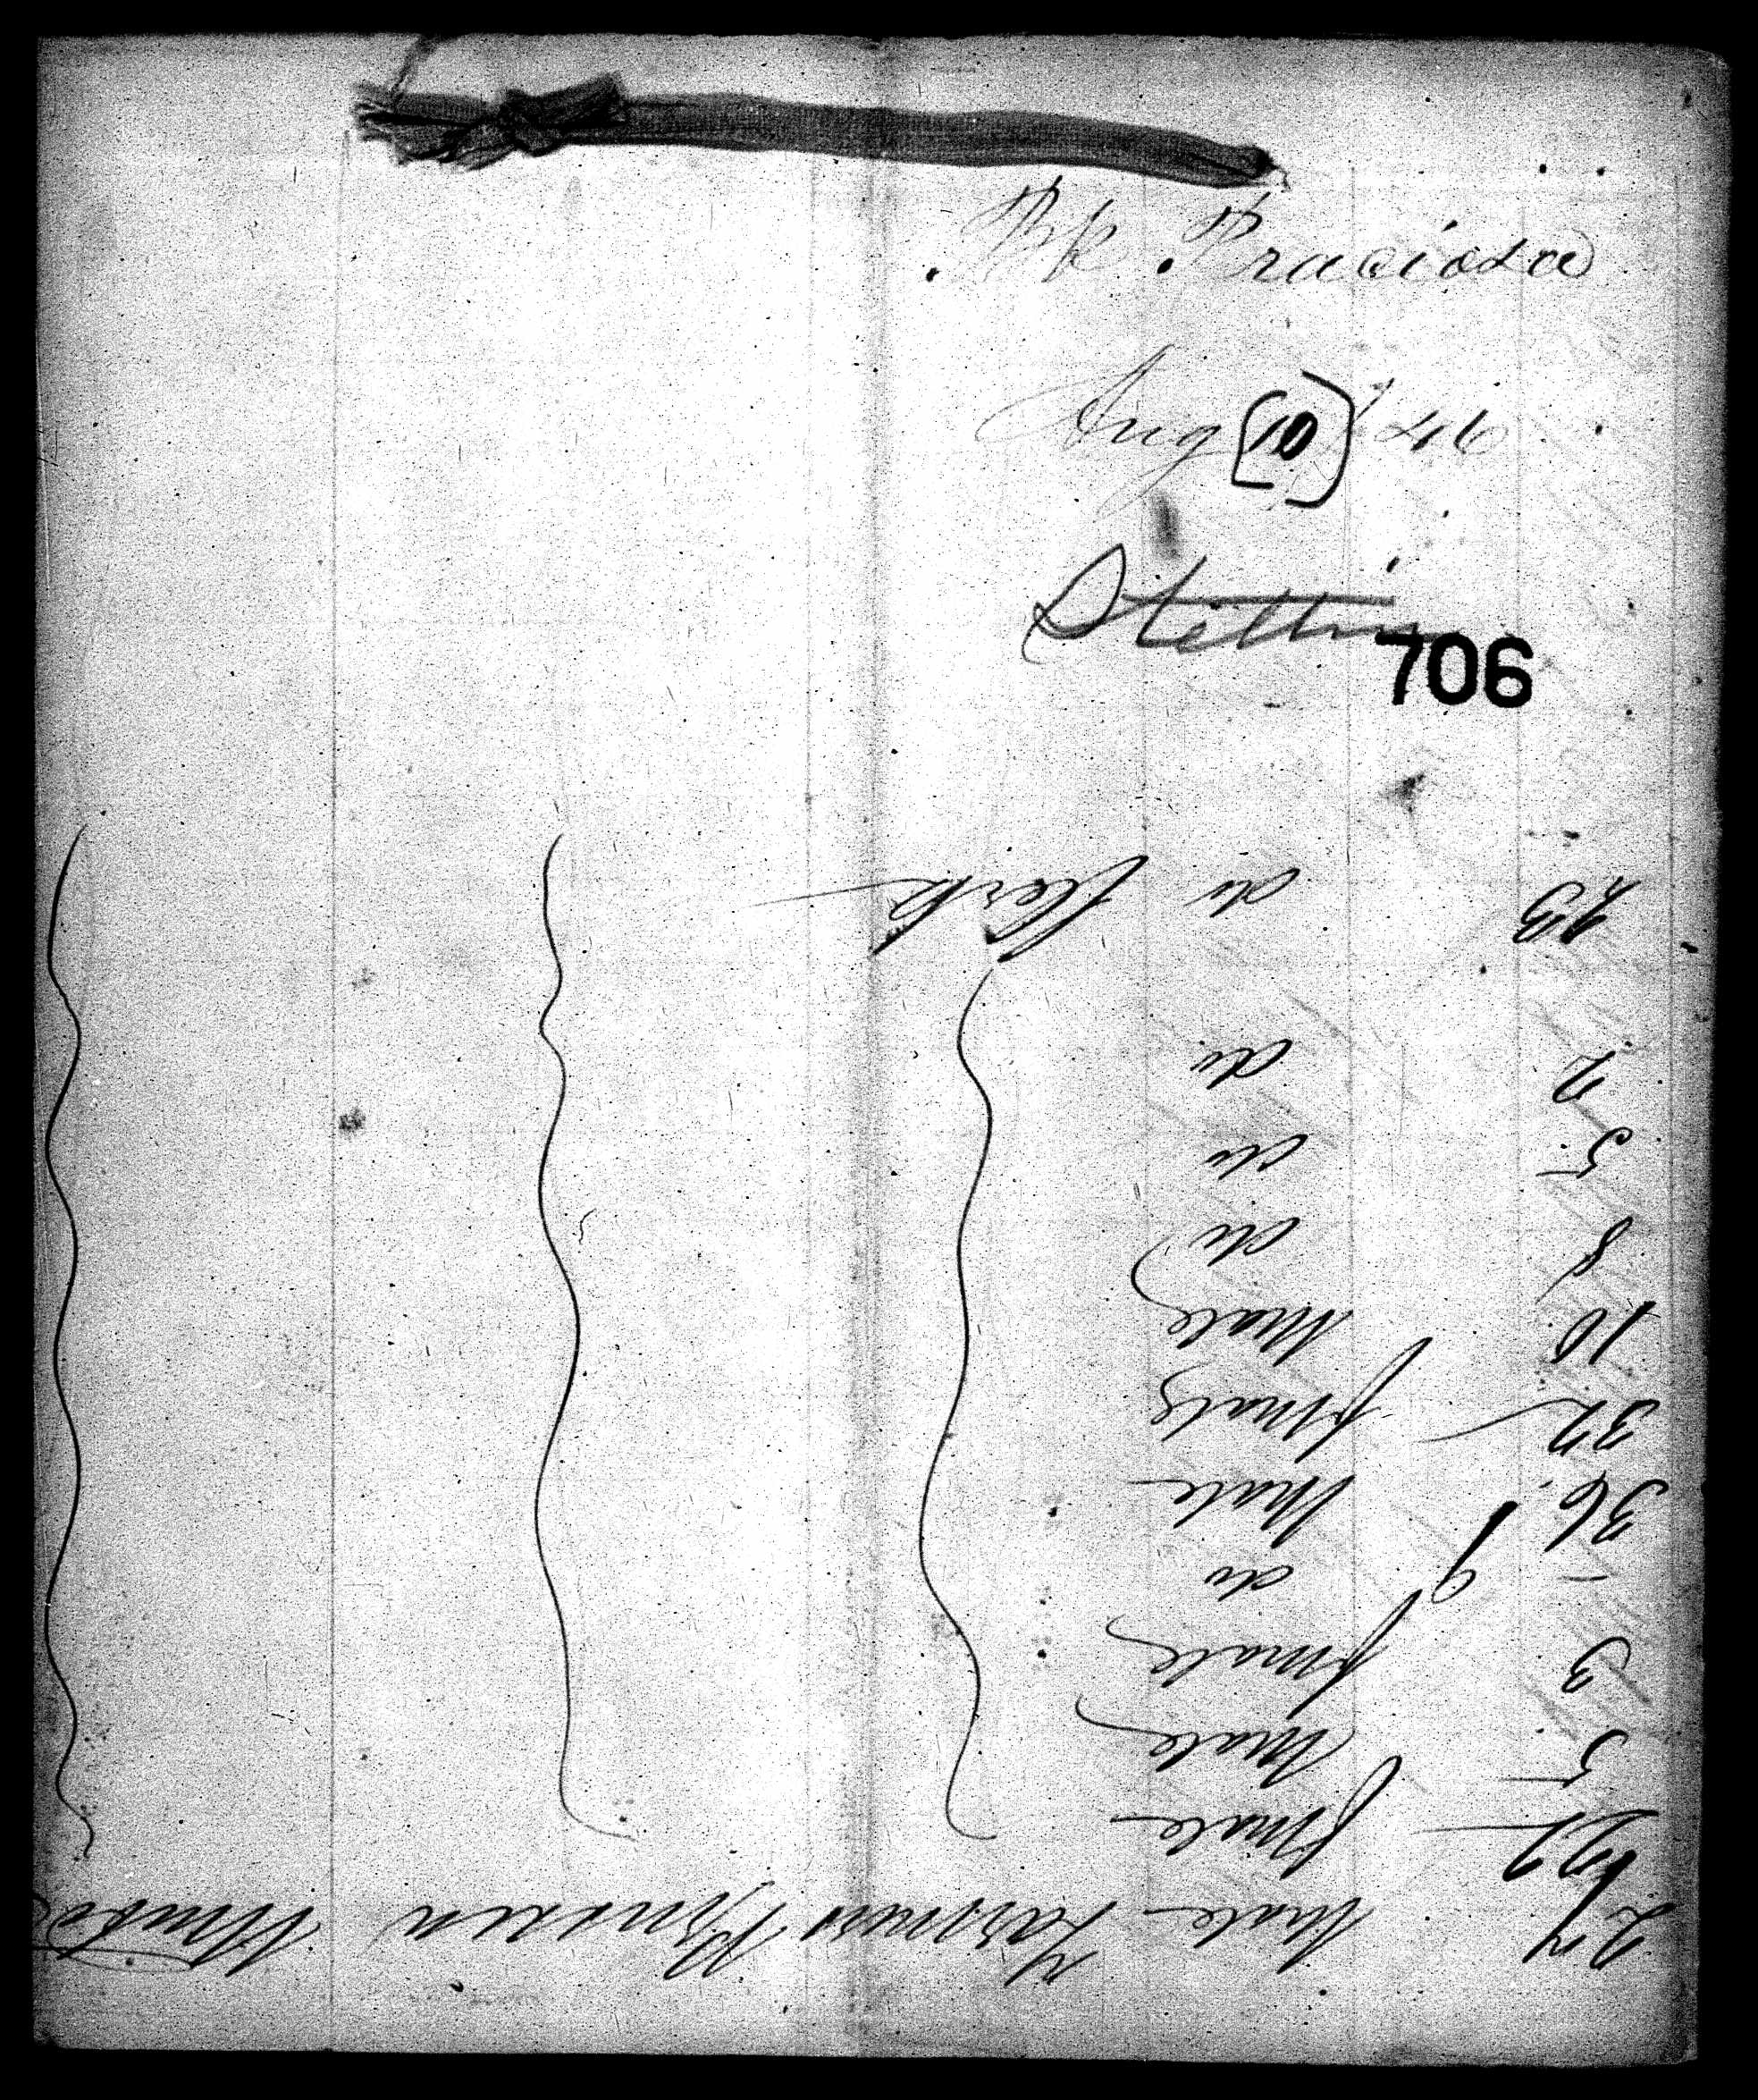 Bk. Praciosa
Aug [10] /46
Stettin
706
Male Farmer Prussen Unite
female
5 Male
3 female
– do
36 Male
32 female
10 Male
8 do
5 do
2 do
23 do Clerk